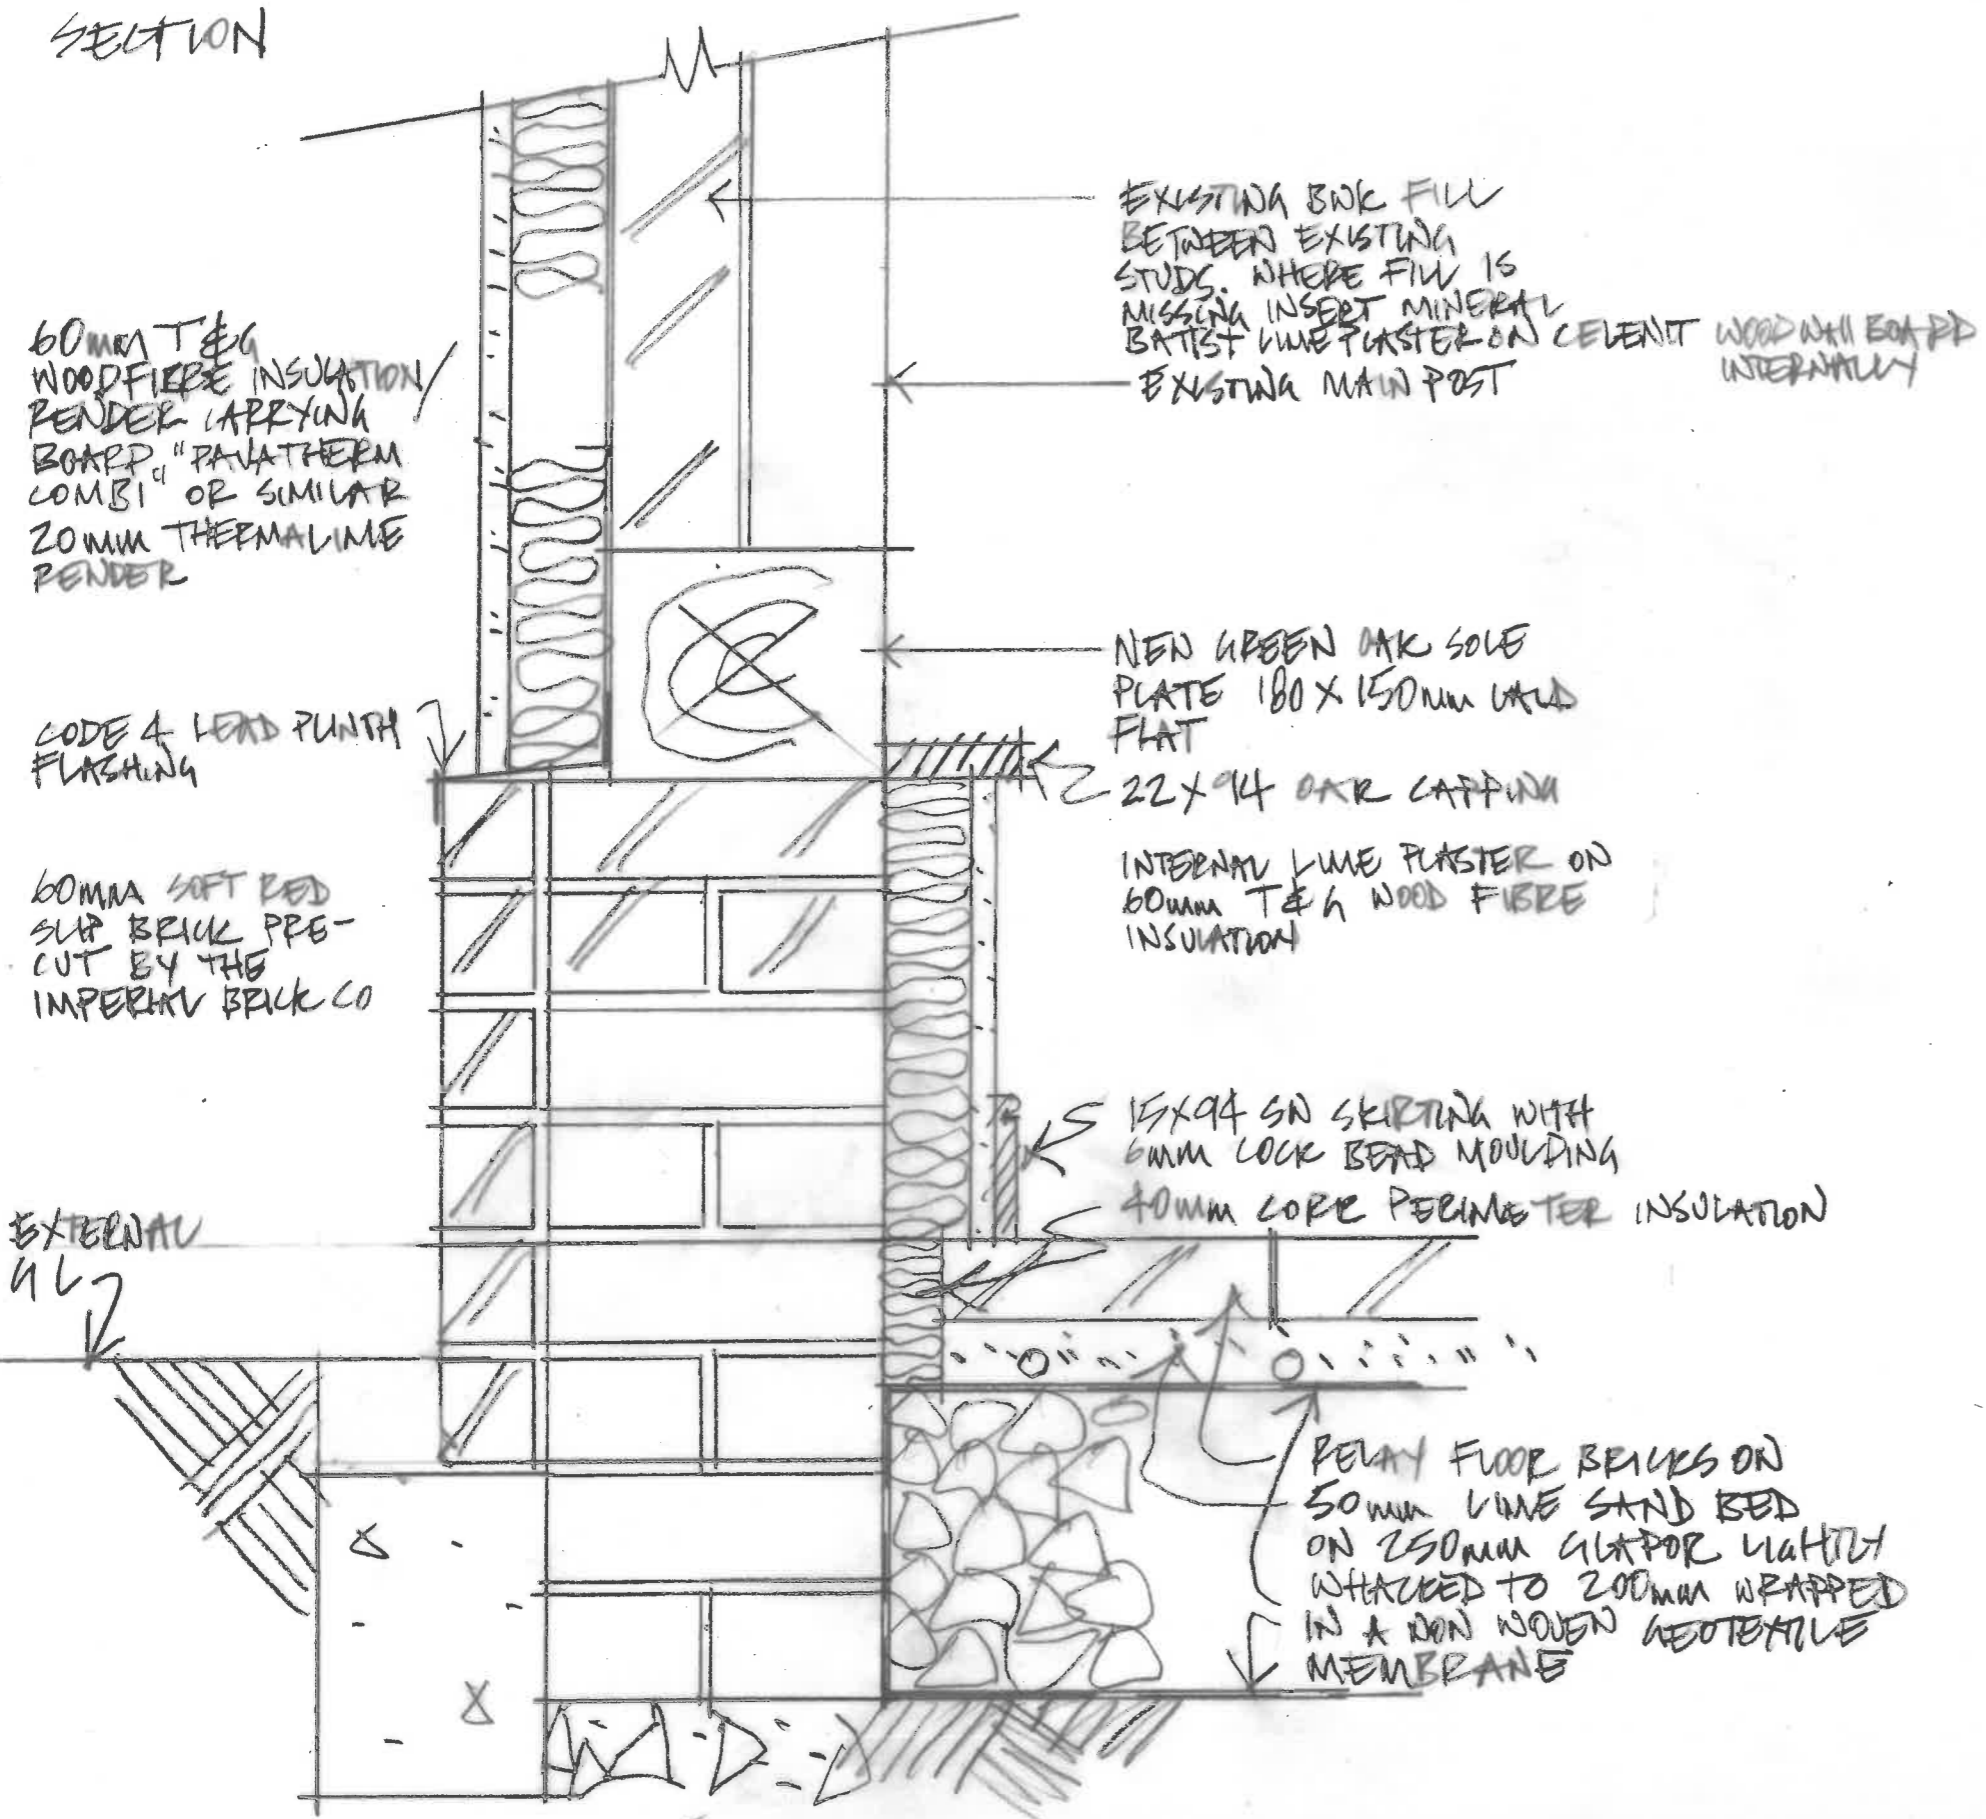 SECTION
EXISTING BRICK FILL
BETWEEN EXISTING
STUDS. WHERE FILL IS
MISSING INSERT MINERAL
BATTS + LIME PLASTER ON CELENIT WOOD WALL BOARD
INTERNALLY
EXISTING MAIN POST
60mm T & G
WOODFIBRE INSULATION/
RENDER CARRYING
BOARD, "PAVATHERM
COMBI" OR SIMILAR
20mm THERMALIME
RENDER
NEW GREEN OAK SOLE
PLATE 180 X 150mm LAID
FLAT
CODE 4 LEAD PLINTH
FLASHING
22 X 94 OAK CAPPING
INTERNAL LIME PLASTER ON
60mm T & G WOOD FIBRE
INSULATION
60mm SOFT RED
SLIP BRICK PRE-
CUT BY THE
IMPERIAL BRICK CO
15X94 SW SKIRTING WITH
6mm COCK BEAD MOULDING
40mm CORK PERIMETER INSULATION
EXTERNAL
GL
RELAY FLOOR BRICKS ON
50mm LIME SAND BED
ON 250mm GLAPOR LIGHTLY
WHACKED TO 200mm WRAPPED
IN A NON WOVEN GEOTEXTILE
MEMBRANE